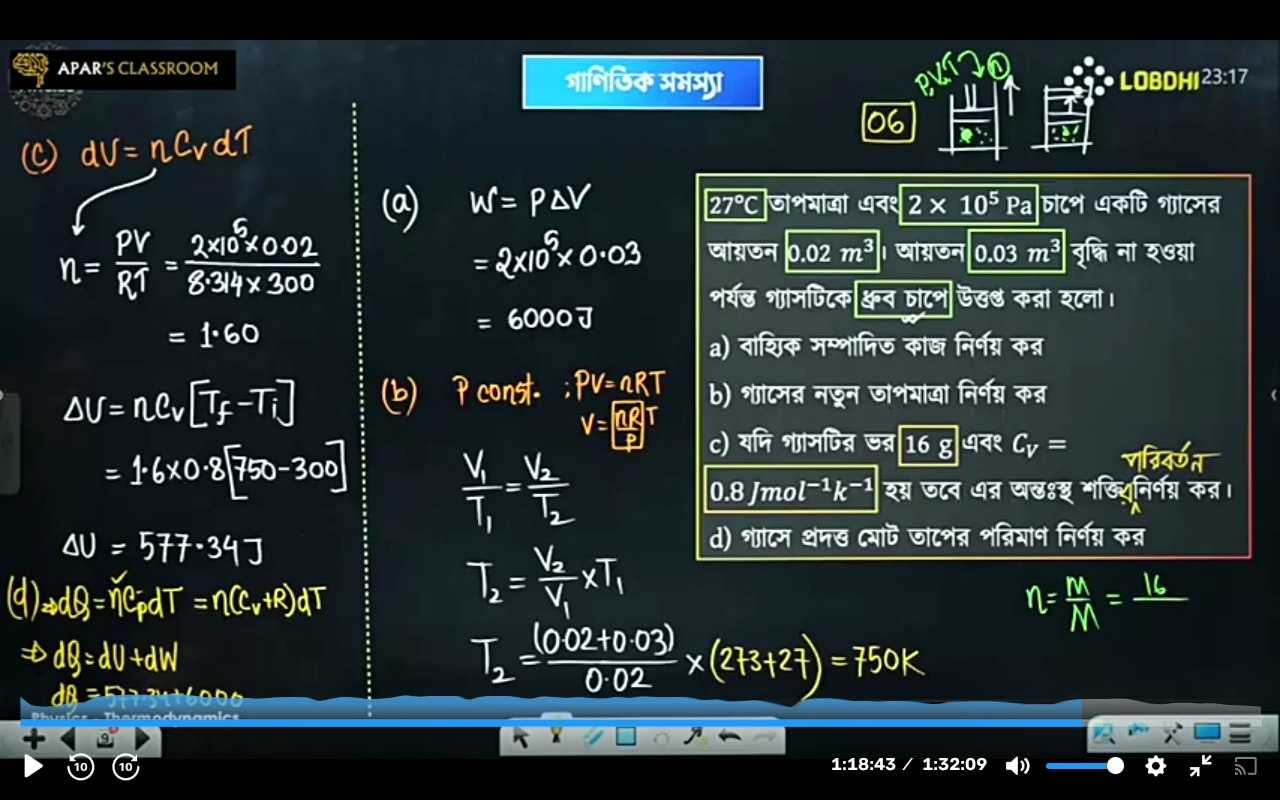 APAR'S CLASSROOM
গাণিতিক সমস্যা
LOBDHI 23:17
P,V,T n
06
(c) dU = nCvdT
n = PV/RT = 2×10⁵×0.02/8.314×300
= 1.60
ΔU = nCv[Tf - Ti]
= 1.6×0.8[750-300]
ΔU = 577.34J
(d)⇒dQ = nCpdT = n(Cv+R)dT
⇒ dQ = dU + dW
dQ = 577.34+6000
Physics - Thermodynamics
(a) W = PΔV
= 2×10⁵×0.03
= 6000J
(b) P const. ; PV = nRT
V = nR/P T
V₁/T₁ = V₂/T₂
T₂ = V₂/V₁ × T₁
T₂ = (0.02+0.03)/0.02 × (273+27) = 750K
27°C তাপমাত্রা এবং 2 × 10⁵ Pa চাপে একটি গ্যাসের
আয়তন 0.02 m³। আয়তন 0.03 m³ বৃদ্ধি না হওয়া
পর্যন্ত গ্যাসটিকে ধ্রুব চাপে উত্তপ্ত করা হলো।
a) বাহ্যিক সম্পাদিত কাজ নির্ণয় কর
b) গ্যাসের নতুন তাপমাত্রা নির্ণয় কর
c) যদি গ্যাসটির ভর 16 g এবং C_V =
পরিবর্তন
0.8 Jmol⁻¹k⁻¹ হয় তবে এর অন্তঃস্থ শক্তির নির্ণয় কর।
d) গ্যাসে প্রদত্ত মোট তাপের পরিমাণ নির্ণয় কর
n = m/M = 16/
9
10 10
1:18:43 / 1:32:09